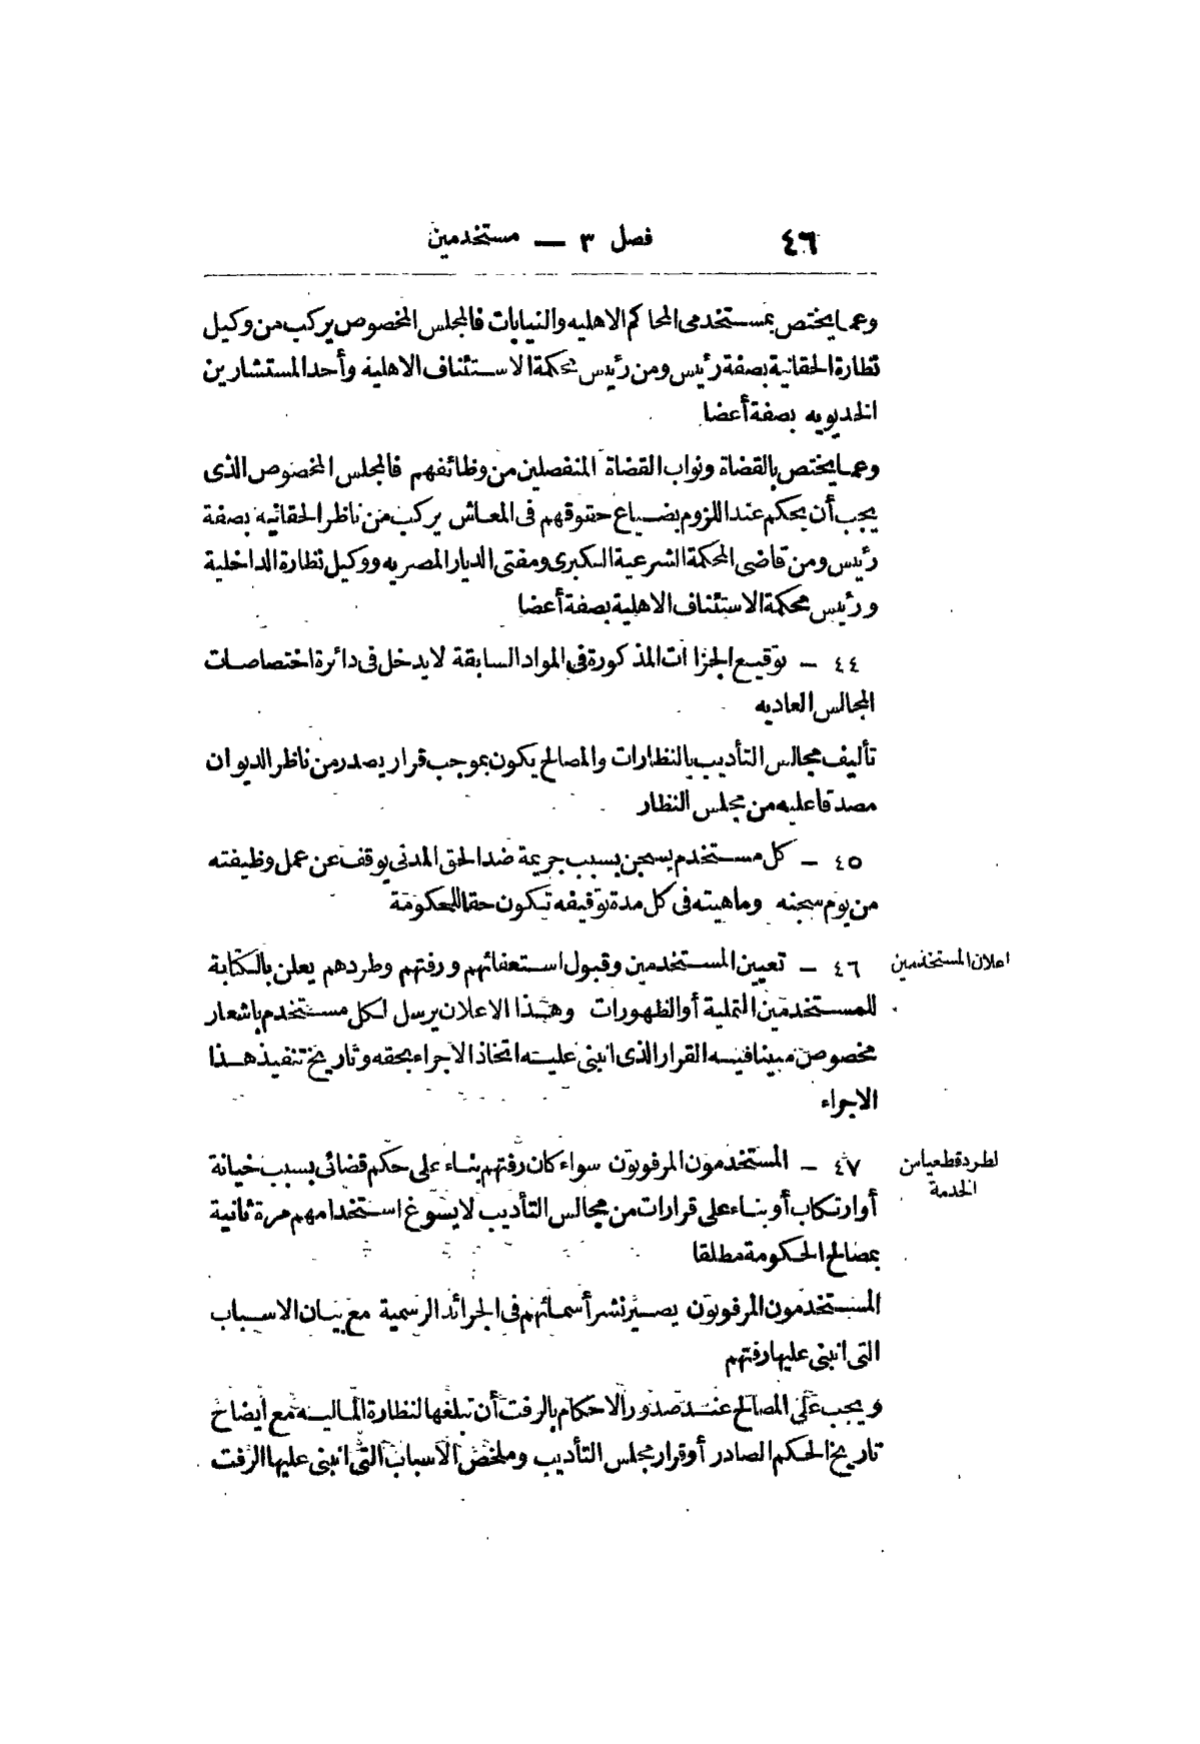 ٤٦ فصل ٣ — مستخدمين
وعما يختص بمستخدمى المحاكم الاهليه والنيابات فالمجلس المخصوص يركب من وكيل
نظارة الحقانية بصفة رئيس ومن رئيس محكمة الاستئناف الاهلية وأحد المستشارين
الخديويه بصفة أعضا
وعما يختص بالقضاة ونواب القضاة المنفصلين من وظائفهم فالمجلس المخصوص الذى
يجب أن يحكم عند اللزوم بضياع حقوقهم فى المعاش يركب من ناظر الحقانيه بصفة
رئيس ومن قاضى المحكمة الشرعية الكبرى ومفتى الديار المصريه ووكيل نظارة الداخلية
ورئيس محكمة الاستئناف الاهلية بصفة أعضا
٤٤ — توقيع الجزاآت المذكورة فى المواد السابقة لا يدخل فى دائرة اختصاصات
المجالس العاديه
تأليف مجالس التأديب بالنظارات والمصالح يكون بموجب قرار يصدر من ناظر الديوان
مصدقا عليه من مجلس النظار
٤٥ — كل مستخدم يسجن بسبب جريمة ضد الحق المدنى يوقف عن عمل وظيفته
من يوم سجنه وماهيته فى كل مدة توقيفه تكون حقا للحكومة
اعلان المستخدمين
٤٦ — تعيين المستخدمين وقبول استعفائهم ورفتهم وطردهم يعلن بالكتابة
للمستخدمين التملية أو الظهورات وهذا الاعلان يرسل لكل مستخدم باشعار
مخصوص مبينا فيه القرار الذى انبنى عليه اتخاذ الاجراء بحقه وتاريخ تنفيذ هذا
الاجراء
لطرد قطعيا من
الخدمة
٤٧ — المستخدمون المرفوتون سواء كان رفتهم بناء على حكم قضائى بسبب خيانة
أو ارتكاب أو بناء على قرارات من مجالس التأديب لا يسوغ استخدامهم مرة ثانية
بمصالح الحكومة مطلقا
المستخدمون المرفوتون يصير نشر أسمائهم فى الجرائد الرسمية مع بيان الاسباب
التى انبنى عليها رفتهم
ويجب على المصالح عند صدور الاحكام بالرفت أن تبلغها لنظارة المالية مع ايضاح
تاريخ الحكم الصادر أو قرار مجلس التأديب وملخص الاسباب التى انبنى عليها الرفت